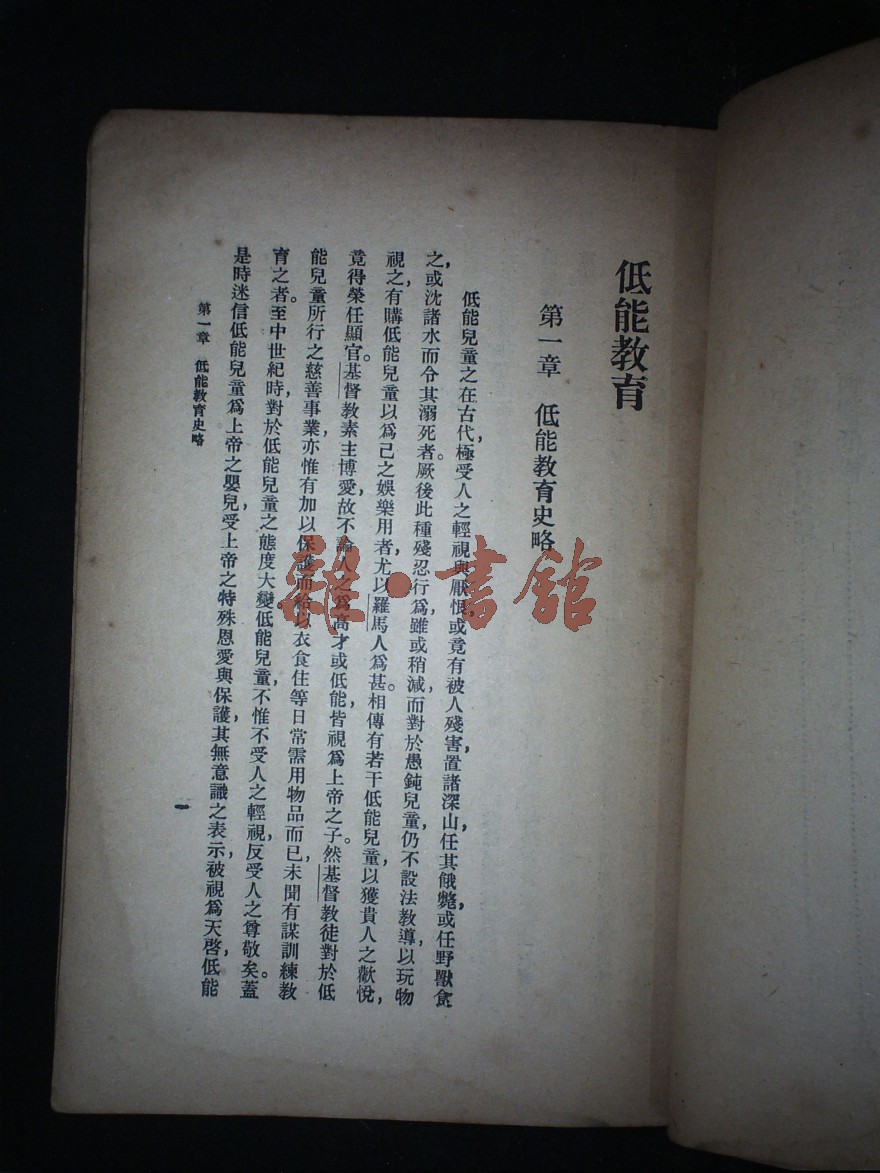 低能教育
第一章 低能教育史略
低能兒童之在古代,極受人之輕視與厭恨,或竟有被人殘害,置諸深山,任其餓斃,或任野獸食
之,或沈諸水而令其溺死者。厥後此種殘忍行爲,雖或稍減,而對於愚鈍兒童,仍不設法教導,以玩物
視之,有購低能兒童以爲己之娛樂用者,尤以羅馬人爲甚。相傳有若干低能兒童,以獲貴人之歡悅,
竟得榮任顯官。基督教素主博愛,故不論人之爲高才或低能,皆視爲上帝之子。然基督教徒對於低
能兒童所行之慈善事業,亦惟有加以保護,而給以衣食住等日常需用物品而已,未聞有謀訓練教
育之者。至中世紀時,對於低能兒童之態度大變,低能兒童,不惟不受人之輕視,反受人之尊敬矣。蓋
是時迷信低能兒童爲上帝之嬰兒,受上帝之特殊恩愛與保護,其無意識之表示,被視爲天啓,低能
第一章 低能教育史略
一
雜·書舘